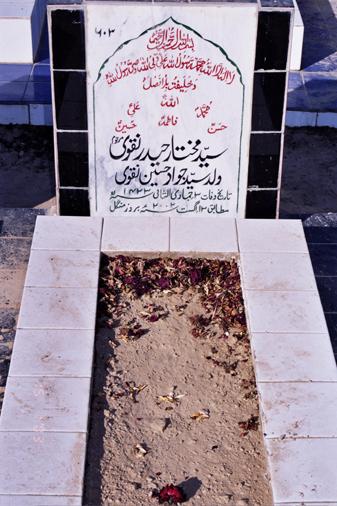 ۶۰۳
بسم اللہ الرحمن الرحیم
لا الہ الا اللہ محمد رسول اللہ علی ولی اللہ وصی رسول اللہ
و خلیفتہ بلا فصل
اللہ
محمد علی
فاطمہ
حسن حسین
سید مختار حیدر نقوی
ولد سید جواد حسین نقوی
تاریخ وفات ۳ جمادی الثانی ۱۴۲۳ھ
مطابق ۱۳ اگست ۲۰۰۲ء بروز منگل